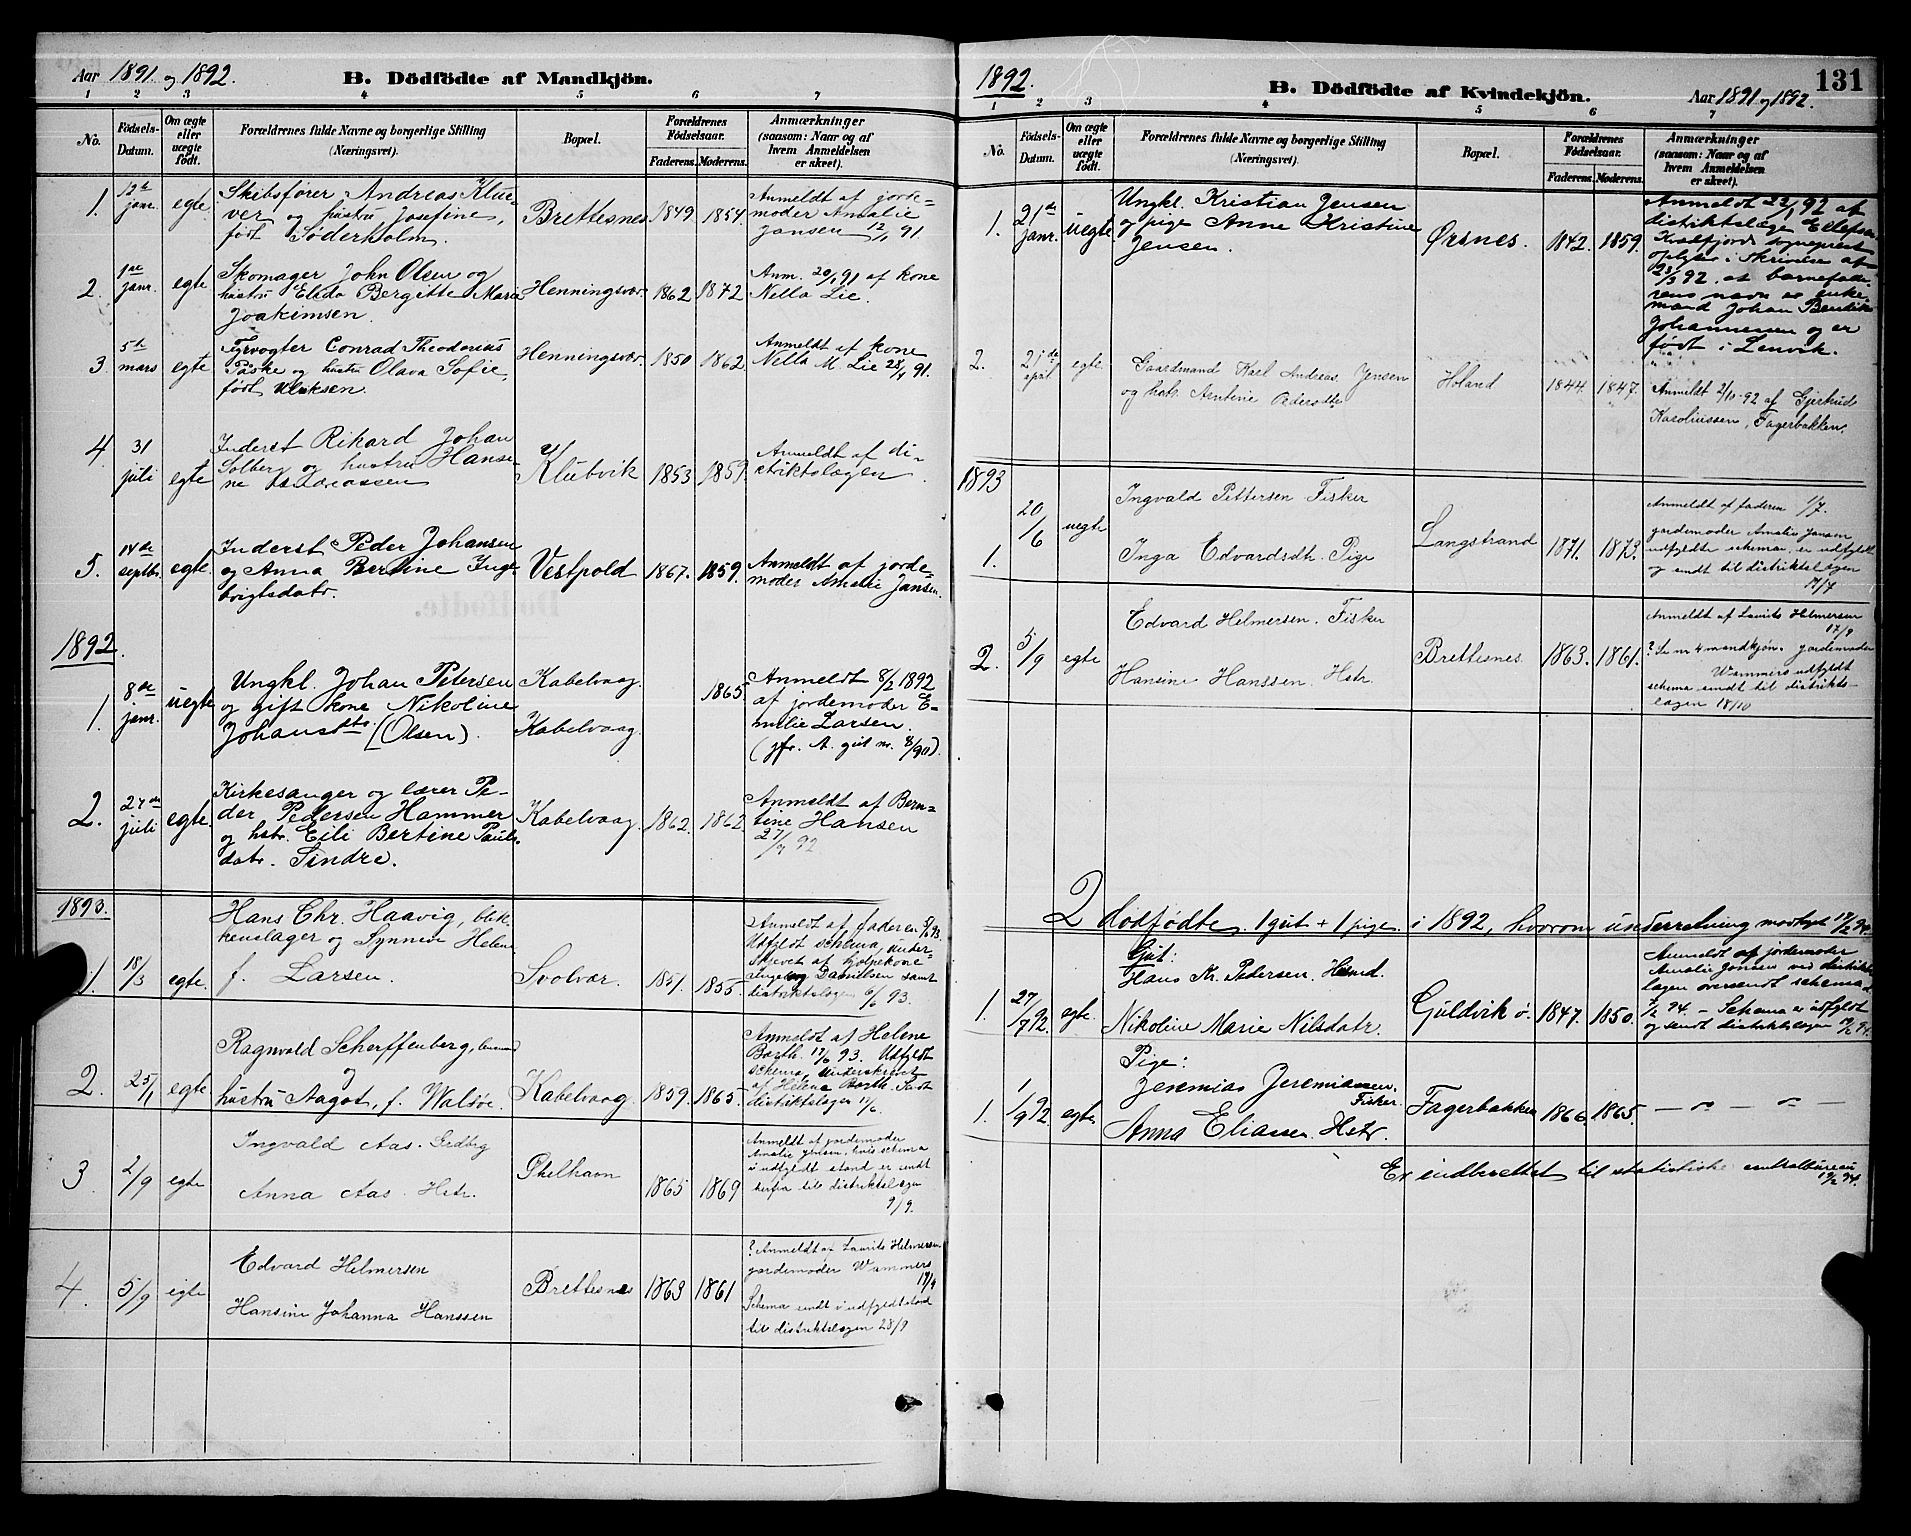 Aar 1891 og 1892. B. Dödfödte af Mandkjön.
1 2 3 4 5 6 7
No. Födsels-Datum. Om ægte eller uægte födt. Forældrenes fulde Navne og borgerlige Stilling (Næringsvei). Bopæl. Forældrenes Födselsaar. Faderens. Moderens. Anmærkninger (saasom: Naar og af hvem Anmeldelsen er skeet).
1. 12te janr. egte Skibsfører Andreas Klüver og hustru Josefine, født Søderholm. Brettesnes 1849 1854 Anmeldt af jordemoder Amalie Jansen 12/1 91.
2. janr. egte Skomager John Olsen og hustru Elida Bergitte Maria Joakimsen. Henningsvær 1862 1872 Anm. 20/1 91 af kone Nella Lie.
3 5te mars egte Fyrvogter Conrad Theodorius Paske og hustru Olava Sofie, født Ulriksen. Henningsvær 1850 1862 Anmeldt af kone Nella M. Lie 91.
4. 31 juli egte Inderst Rikard Johan Solberg og hustru Hansine Andreassen Klubvik 1853 1859. Anmeldt af distriktslægen.
5. 14de septbr. egte. Inderst Peder Johansen og Anna Bertine Ingebrigtsdatr. Vestpold 1867. 1859. Anmeldt af jordemoder Amalie Jansen.
1892.
1. 8de janr. uegte Ungkl. Johan Petersen og gift kone Nikoline Johansdtr. (Olsen). Kabelvaag. Kabelvaag. 1865 Anmeldt 8/2 1892 af jordemoder Emilie Larsen. (jfr. A. gut nr. 8/90).
2. 27de juli egte. Kirkesanger og lærer Peder Pedersen Hammer og hstr. Eili Bertine Paulsdatr. Sindre. Kabelvaag. 1862. 1862. Anmeldt af Berntine Hansen 27/7 92
1893.
1. 18/3 egte. Hans Chr. Haavig, blikkenslager og Synneve Helene f. Larsen. Svolvær. 1851. 1855. Anmeldt af faderen 93. Udfyldt schema, underskrevet af hjelpekone Ingeborg Danielsen samt distriktslægen 6/6 93.
2. 25/1 egte Ragnvald Scherffenberg, og hustru Aagot, f. Walsøe. Kabelvaag 1859. 1865. Anmeldt af Helene Barth. 17/6 93. Udfyldt schema, underskrevet af Helene Barth. Sendt distriktslægen 17/6.
3. 2/9 egte Ingvald Aas. Anna Aas. Hstr. Skelhavn 1865 1869 Anmeldt af jordemoder Amalie Jensen, hvis schema i udfyldt stand er sendt herfra til distriktslægen 9/9.
4. 5/9 egte Edvard Helmersen Hansine Johanna Hanssen Brettesnes 1863 1861 ? Anmeldt af Laurits Helmersen. jordemoder Wammers 17/9 Schema sendt i udfyldt stand til distriktslægen 28/9
1892. B. Dödfödte af Kvindekjön. Aar 1891 og 1892. 131
1 2 3 4 5 6 7
No. Födsels-Datum. Om ægte eller uægte födt. Forældrenes fulde Navne og borgerlige Stilling (Næringsvei). Bopæl. Forældrenes Födselsaar. Faderens. Moderens. Anmærkninger (saasom: Naar og af hvem Anmeldelsen er skeet).
1. 21de janr. uegte Ungkl. Kristian Jensen og pige Anne Kristine Jensen. Ørsnes. 1842. 1859. Anmeldt 22/1 92 af distriktslæge Ellefsen. Kvædfjords sogneprest oplyser i skrivelse af 23/3 92, at barnefaderens navn er enkemand Johan Bendik Johannessen og er født i Lenvik.
2. 21de april egte. Gaardmand Karl Andreas Jensen og hstr. Arntine Pedersdtr. Holand 1844 1847. Anmeldt 2/10-92 af Gjertrud Karoliussen, Fagerbakken.
1893
1. 20/6 uegte Ingvald Pettersen Fisker Inga Edvardsdtr. Pige Langstrand 1871. 1873. Anmeldt af faderen 1/7. jordemoder Amalie Jansen udfyldte schema, er udfyldt og sendt til distriktslægen 17/7
2. 5/9 egte Edvard Helmersen. Fisker Hansine Hanssen. Hstr. Brettesnes. 1863. 1861. Anmeldt af Laurits Helmersen 17/9 ? Se nr 4 mandkjøn. jordemoder Wammers udfyldt schema sendt til distriktslægen 18/10
2 dødfødte. 1 gut + 1 pige i 1892, hvorom underretning modtaget 17/2 94.
Gut:
1. 27/7 92. egte. Hans Kr. Pedersen. Hsmd. Nikoline Marie Nilsdatr. Guldvik ø. 1847. 1850. Anmeldt af jordemoder Amalie Jansen ved distriktslægen oversendt schema 7/2 94. — Schema er udfyldt og sendt distriktslægen 94.
Pige:
1. 1/9 92 egte Jeremias Jeremiassen. Fisker. Anna Eliassen Hstr. Fagerbakken 1866 1865. — " — " —
Er indberettet til statistiske centralbureau 94.